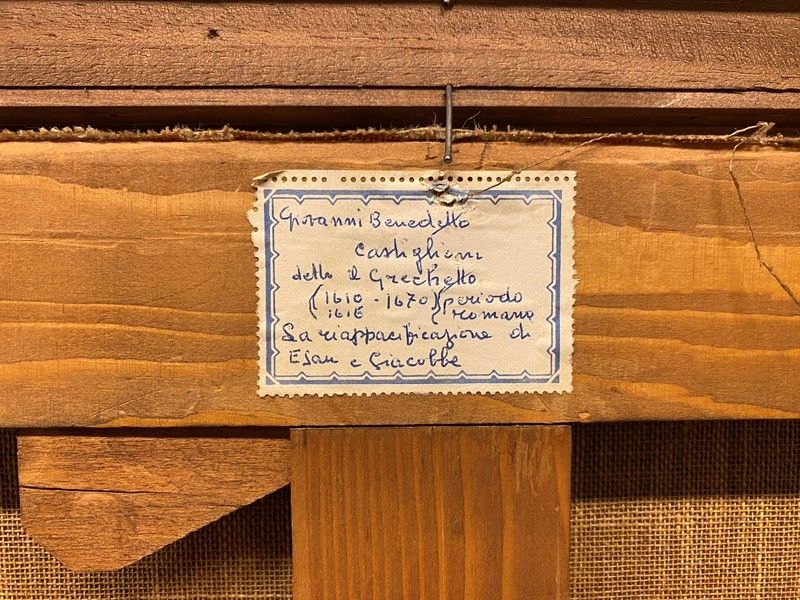 Giovanni Benedetto
Castiglione
detto il Grechetto
(1610 - 1670) (periodo
1616 romano
La riappacificazione di
Esau e Giacobbe